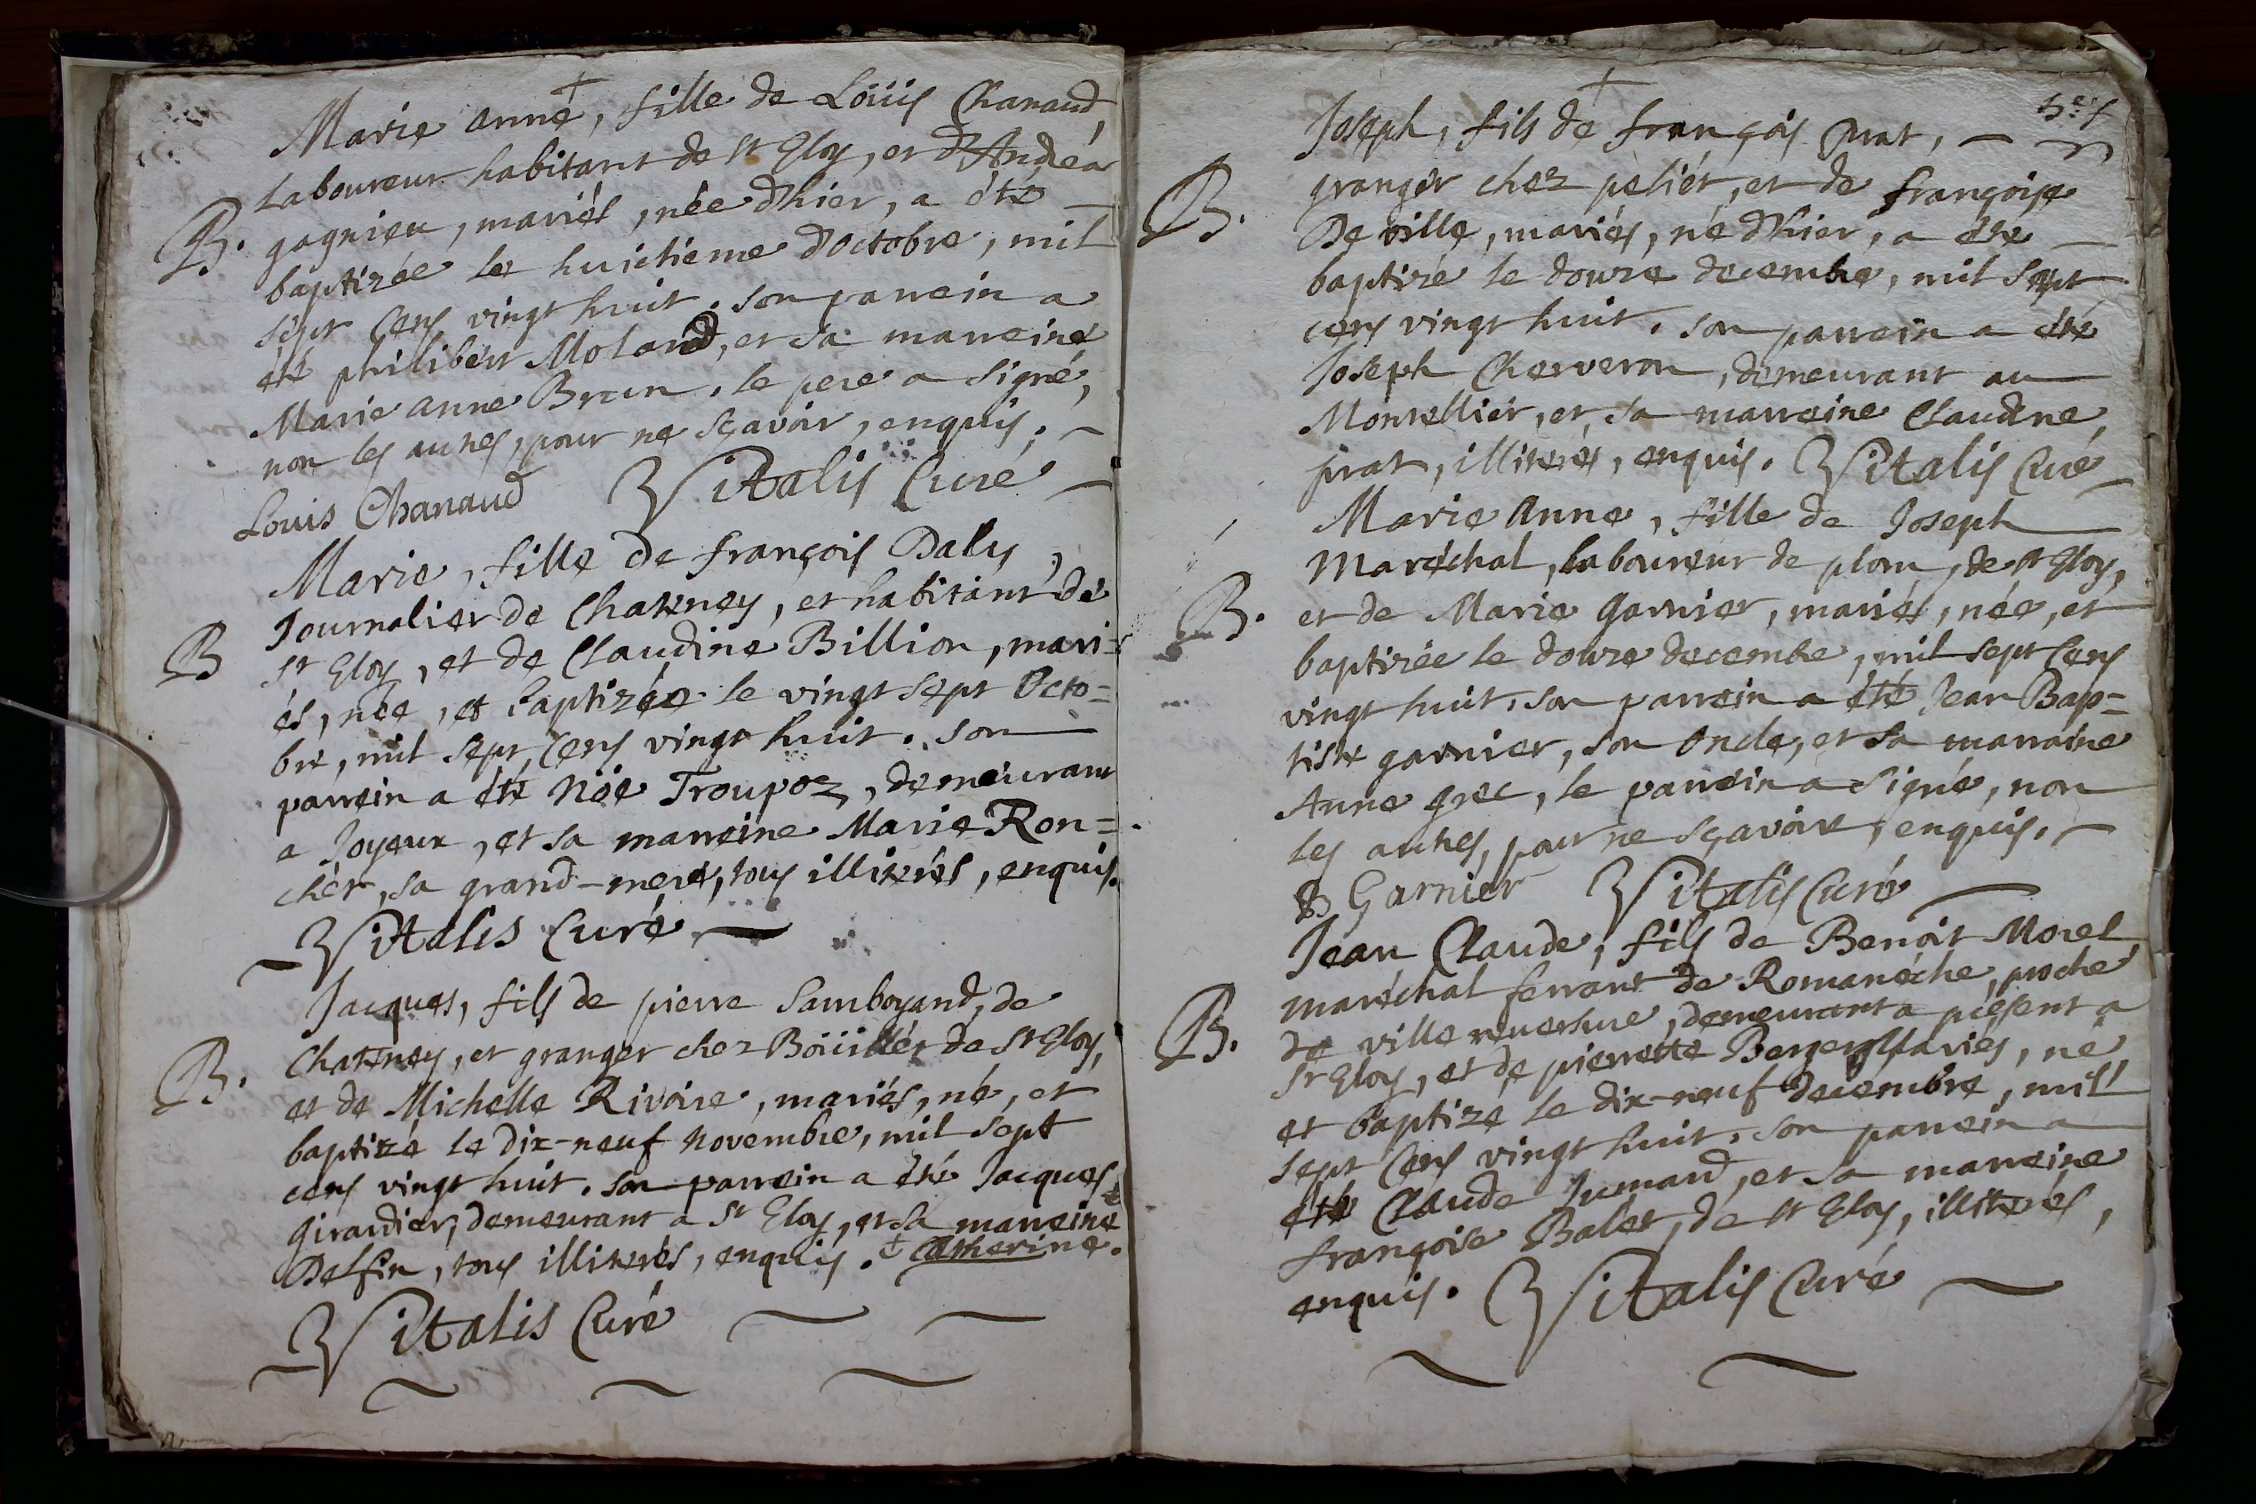 Marie anne, fille de Loüis Chanaud,
Laboureur habitant de St Eloy, et d'Andréa
B. gagnieu, mariés, née d'hier, a été
baptizée le huictième d'octobre, mil
sept cens vingt huit. son parrein a
été philibert Moland, et sa marreine
Marie anne Brun. le pere a signé,
non les autres, pour ne sçavoir, enquis.
Louis Chanaud Vitalis Curé
Marie, fille de françois Daly,
Journalier de Chatenay, et habitant de
B St Eloy, et de Claudine Billion, mari-
és, née, et baptizée le vingt sept Octo=
bre, mil sept cens vingt huit. son
parrein a été Noë Troupoz, demeurant
a Joyeux, et sa marreine Marie Ron=
cher, sa grand-mere, tous illiterés, enquis.
Vitalis Curé
Jacques, fils de pierre Samboyand, de
Chatenay, et granger chez Boüillér de St Eloy,
B. et de Michelle Rivoire, mariés, né, et
baptizé le dix-neuf novembre, mil sept
cens vingt huit. son parrein a été Jacques
Girardier, demeurant a St Eloy, et sa marreine ‡
Delfin, tous illiterés, enquis. ‡ Catherine.
Vitalis Curé
Joseph, fils de françois prat,
B. granger chez peliér, et de françoise
De ville, mariés, né d'hier, a été
baptizé le douze decembre, mil sept
cens vingt huit. son parrein a été
Joseph Cherveron, demeurant au
Montellier, et sa marreine Claudine
prat, illiterés, enquis. Vitalis Curé
Marie Anne, fille de Joseph
Maréchal, laboureur de plom, de St Eloy,
B. et de Marie Garnier, mariés, née, et
baptizée le douze decembre, mil sept cens
vingt huit, son parrein a été Jean Bap=
tiste garnier, son oncle, et sa marraine
Anne grec, le parrein a signé, non
les autres, pour ne sçavoir, enquis.
B Garnier Vitalis Curé
Jean Claude, fils de Benoit Morel
maréchal ferrant de Romanéche, proche
B. de ville reversure, demeurant a present a
St Eloy, et de pierrette Berger mariés, né,
et baptizé le dix-neuf decembre, mil
sept cens vingt huit. son parrein a
été Claude Jumard, et sa marreine
françoise Balet, de St Eloy, illiterés,
enquis. Vitalis Curé